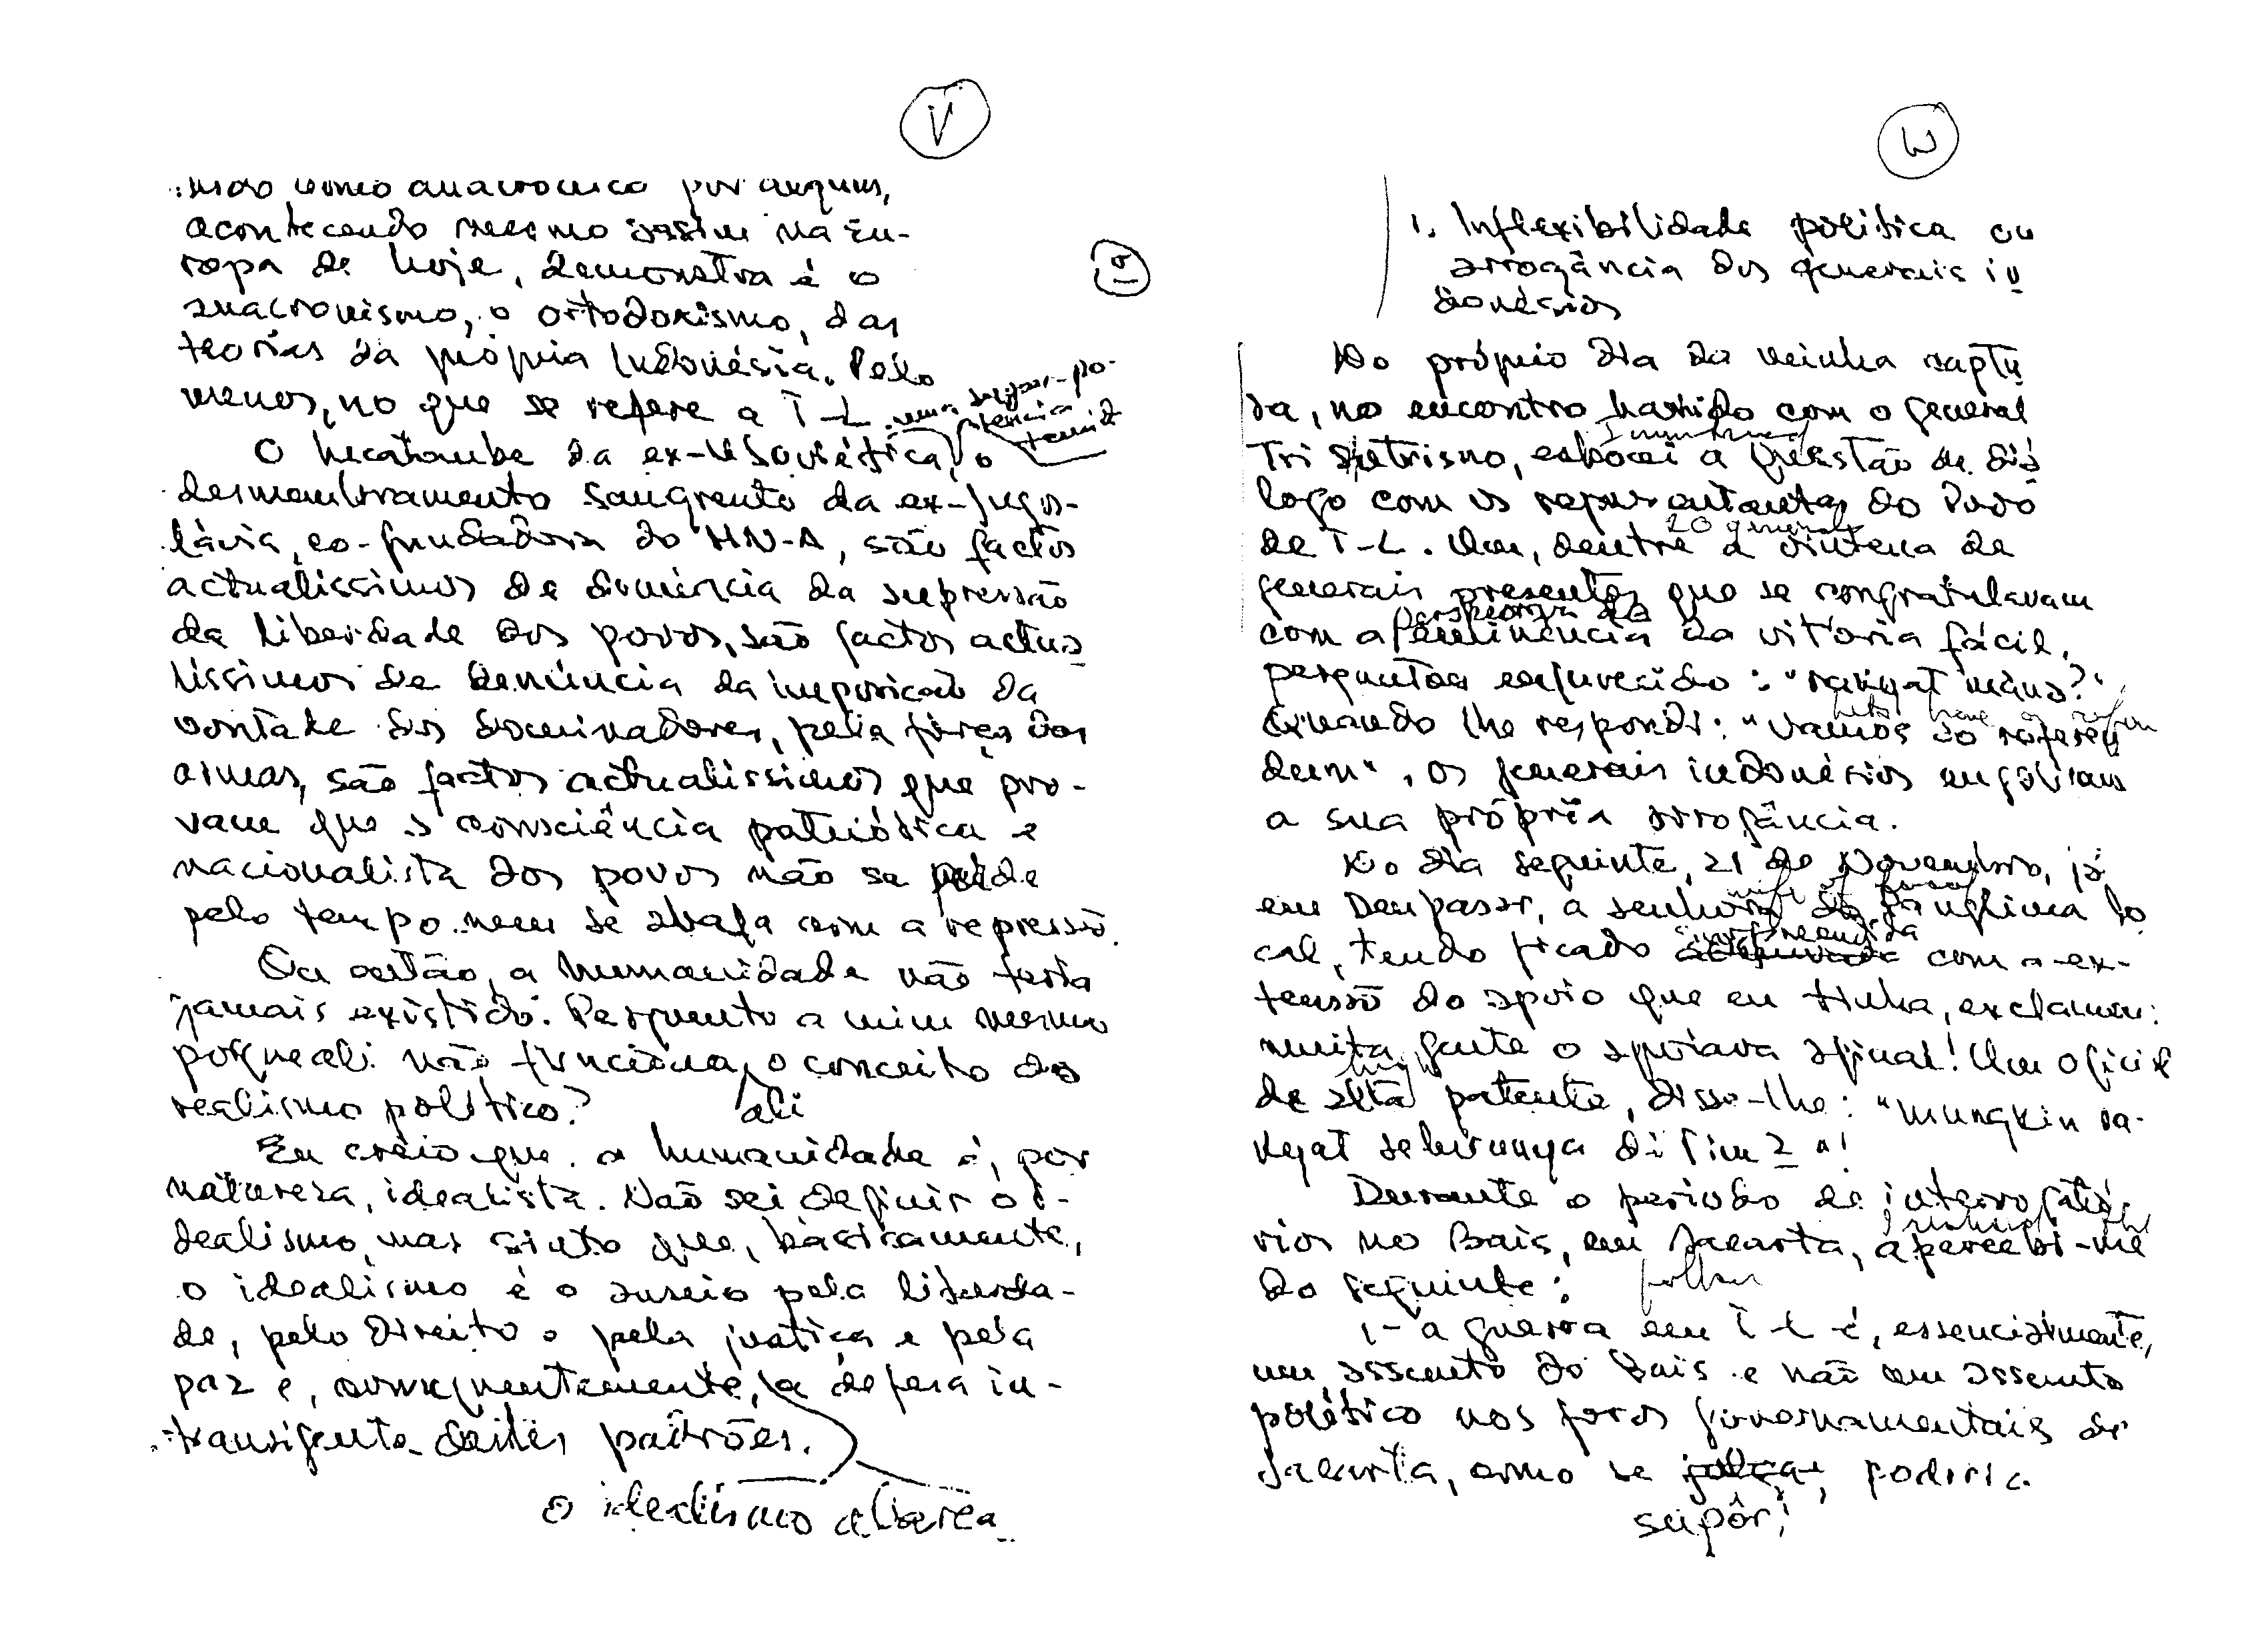 V
como anacronico por alguns,
acontecendo mesmo assim na Eu-
ropa de hoje, demonstra é o
anacronismo, o ortodoxismo, das
teorias da própria Indonésia. Pelo
menos, no que se refere a T-L.
uma super-po-
tência
temida
O hecatombe da ex-U Soviética, o
desmembramento sangrento da ex-Jugos-
lávia, co-fundadora do MN-A, são factos
actualissimos de denúncia da supressão
da liberdade dos povos, são factos actua
lissimos de denúncia da imposição da
vontade dos dominadores, pela força das
armas, são factos actualissimos que pro-
vam que a consciência patriótica e
nacionalista dos povos não se perde
pelo tempo nem se abafa com a repressão.
Ou então, a humanidade não teria
jamais existido. Pergunto a mim mesmo
porque ali não funciona o conceito do
realismo político?
ali
Eu creio que a humanidade é, por
natureza, idealista. Não sei definir o i-
dealismo, mas sinto que, basicamente,
o idealismo é o anseio pela liberda-
de, pelo Direito e pela justiça e pela
paz e, consequentemente, a defesa in-
transigente destes padrões.
o idealismo abarca
W
1. Inflexibilidade política ou
arrogância dos generais in
donésios
No próprio dia da minha captu
ra, no encontro havido com o general
Tri Sutrisno, esbocei a questão de diá
logo com os representantes do Povo
20 generals
de T-L. Um, dentre a vintena de
generais presentes que se congratulavam
com a da vitória fácil,
perguntou enfurecido: "rakyat mana?"
Quando lhe respondi: "Vamos ao referen
dum", os generais indonésios engoliram
a sua própria arrogância.
No dia seguinte, 21 de Novembro, já
wife of
em Denpasar, a senhora do Panglima lo
surpreendida
cal, tendo ficado com a ex-
tensão do apoio que eu tinha, exclamou:
muita gente o apoiava afinal! Um oficial
high
de alta patente, disse-lhe: "Mungkin ra-
kyat seluruhnya di Tim2"!
Durante o período de interrogató
rios no Bais, em Jacarta, apercebi-me
do seguinte:
1- a guerra em T-L é, essencialmente,
um assunto do Bais e não um assunto
político nos foros governamentais de
Jacarta, como se poderia
supôr;